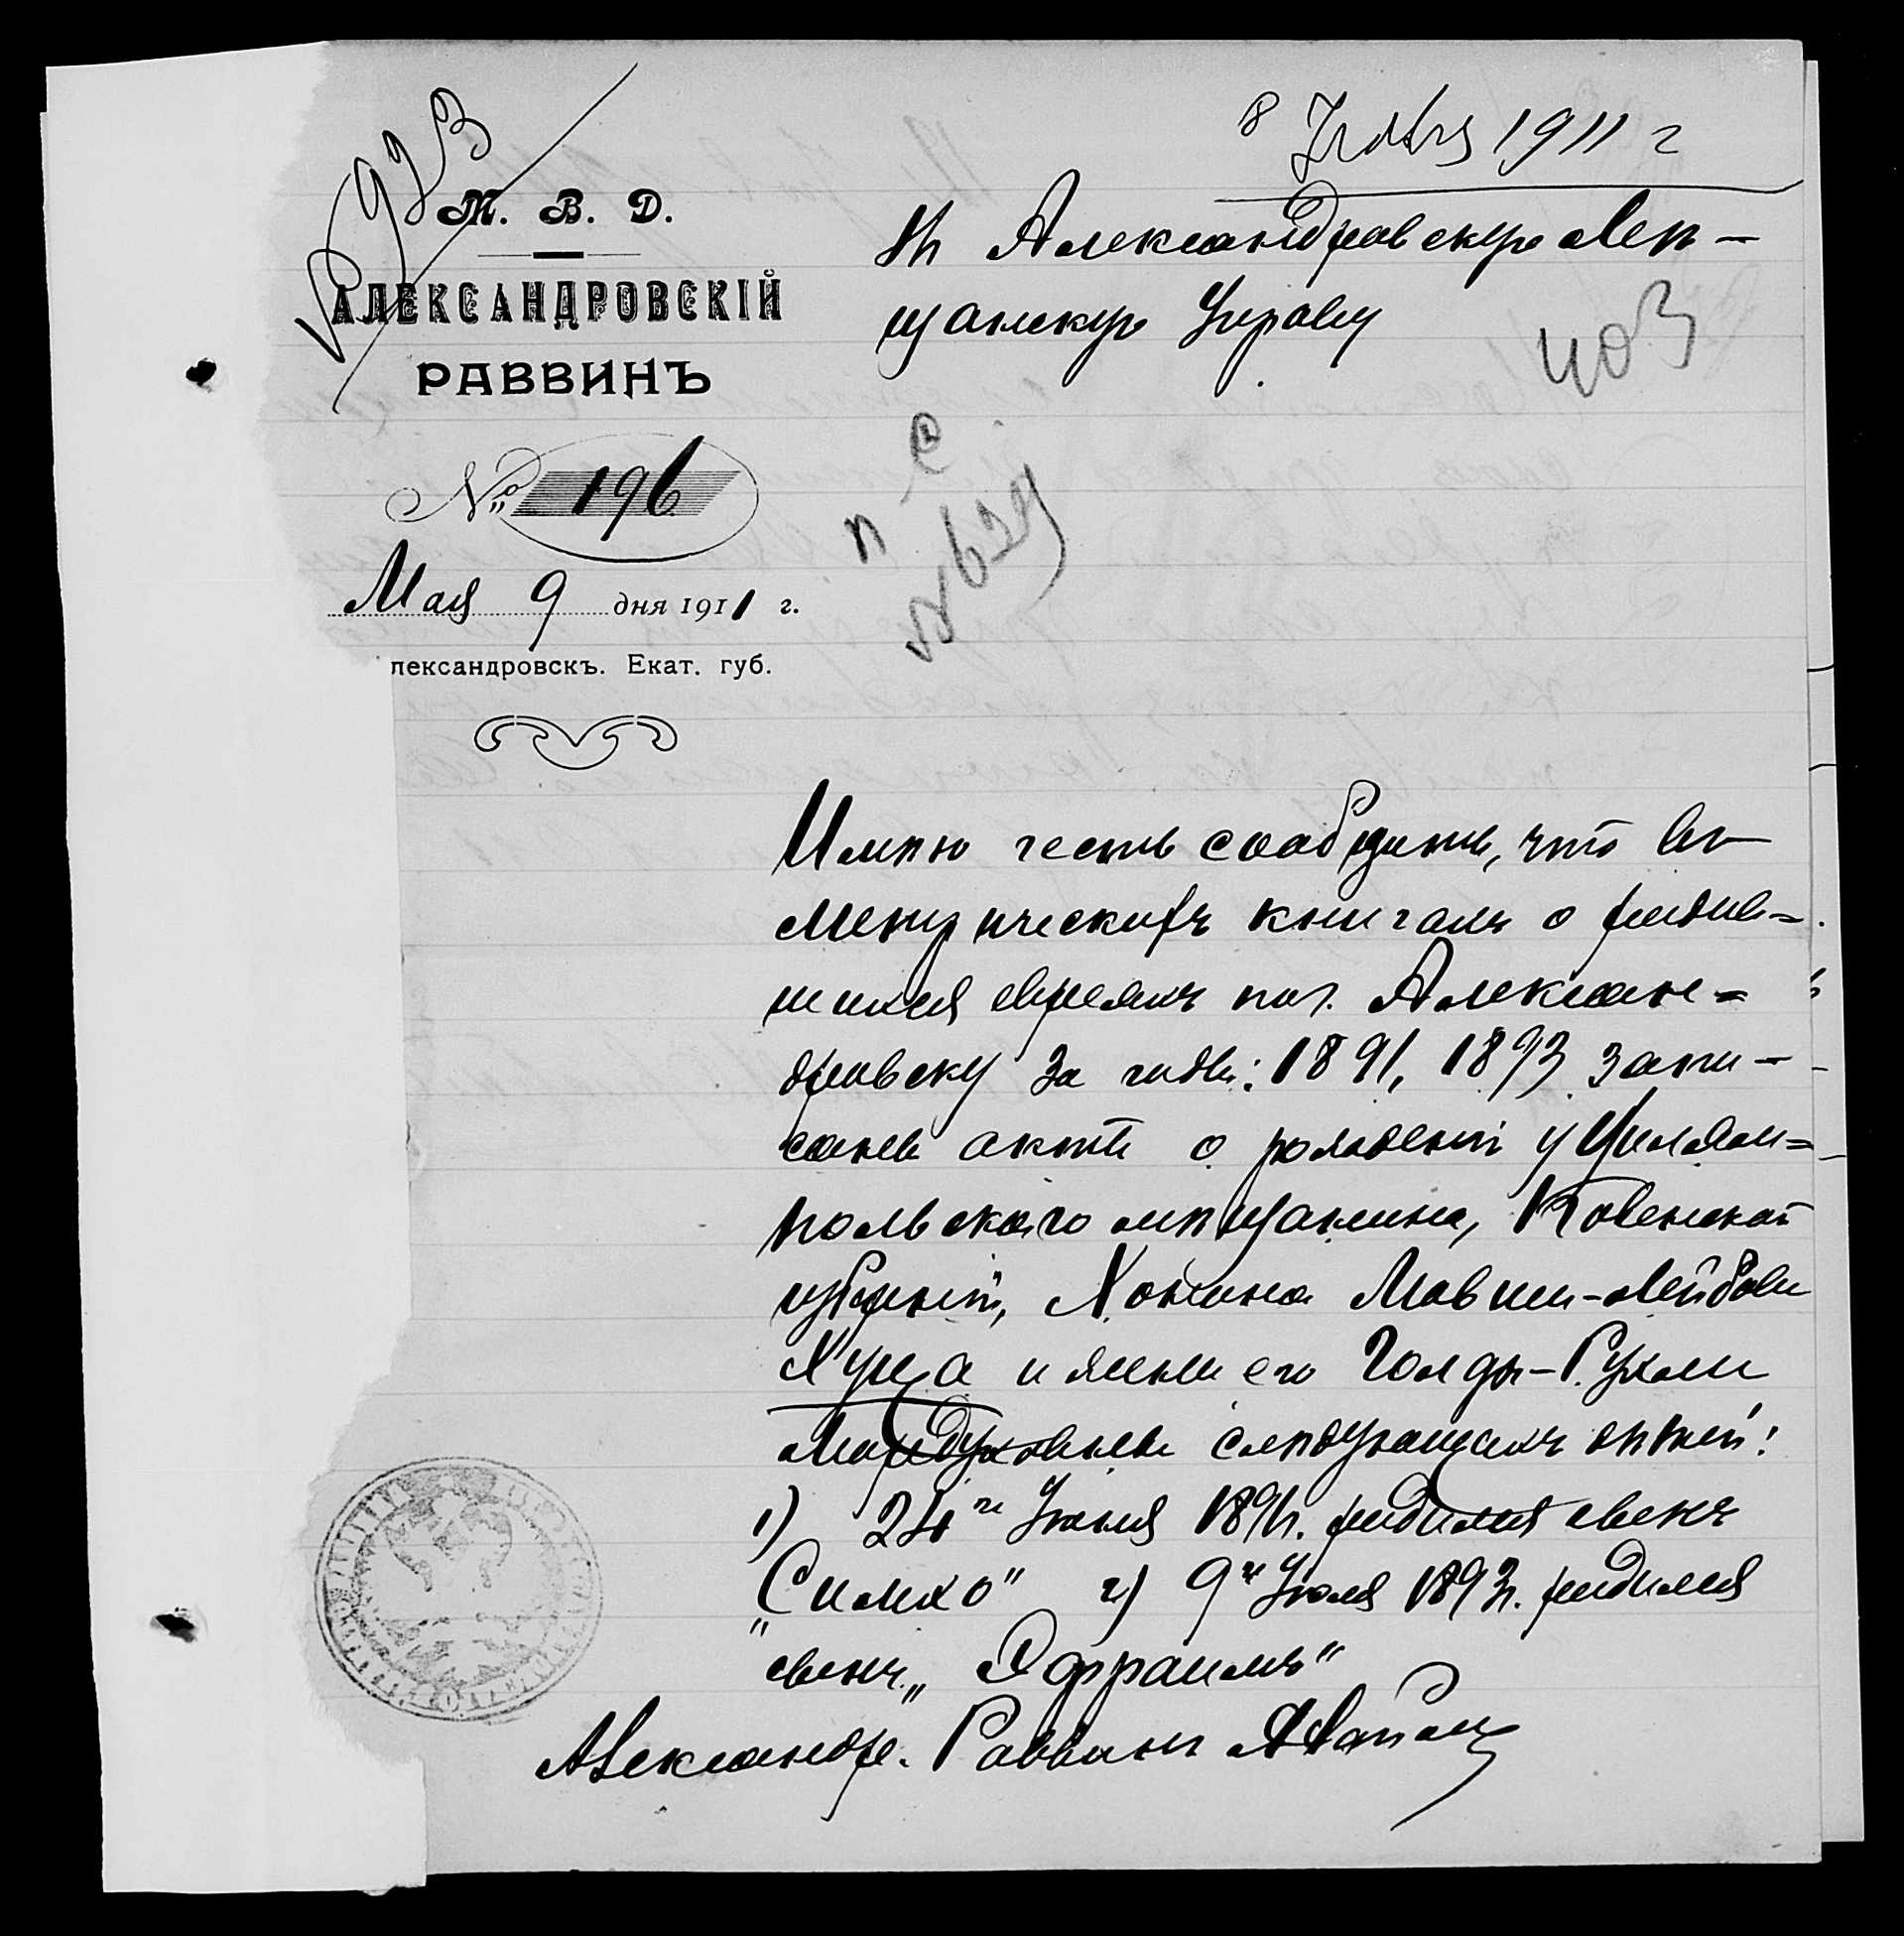 8 1911 г
№ 923
М. В. Д.
АЛЕКСАНДРОВСКІЙ
РАВВИНЪ
№ 196
Мая 9 дня 1911 г.
лександровскъ. Екат. губ.
Въ Александровскую Мѣ-
щанскую Управу
403
Имѣю честь сообщить, что въ
метрическихъ книгахъ о родив-
шихся евреяхъ по г. Алексан-
дровску за годы: 1891, 1893 запи-
саны акты о рожденіи у
польскаго мѣщанина, Ковенской
губерніи, Хонона Мовши-Лейбова
Куца и жены его Голды-Рухли
Мордуховны слѣдующихъ дѣтей:
1) 24го Іюня 1891г. родился сынъ
„Симхо" 2) 9го Іюля 1893г. родился
сынъ „Эфраимъ"
Александр. Раввинъ